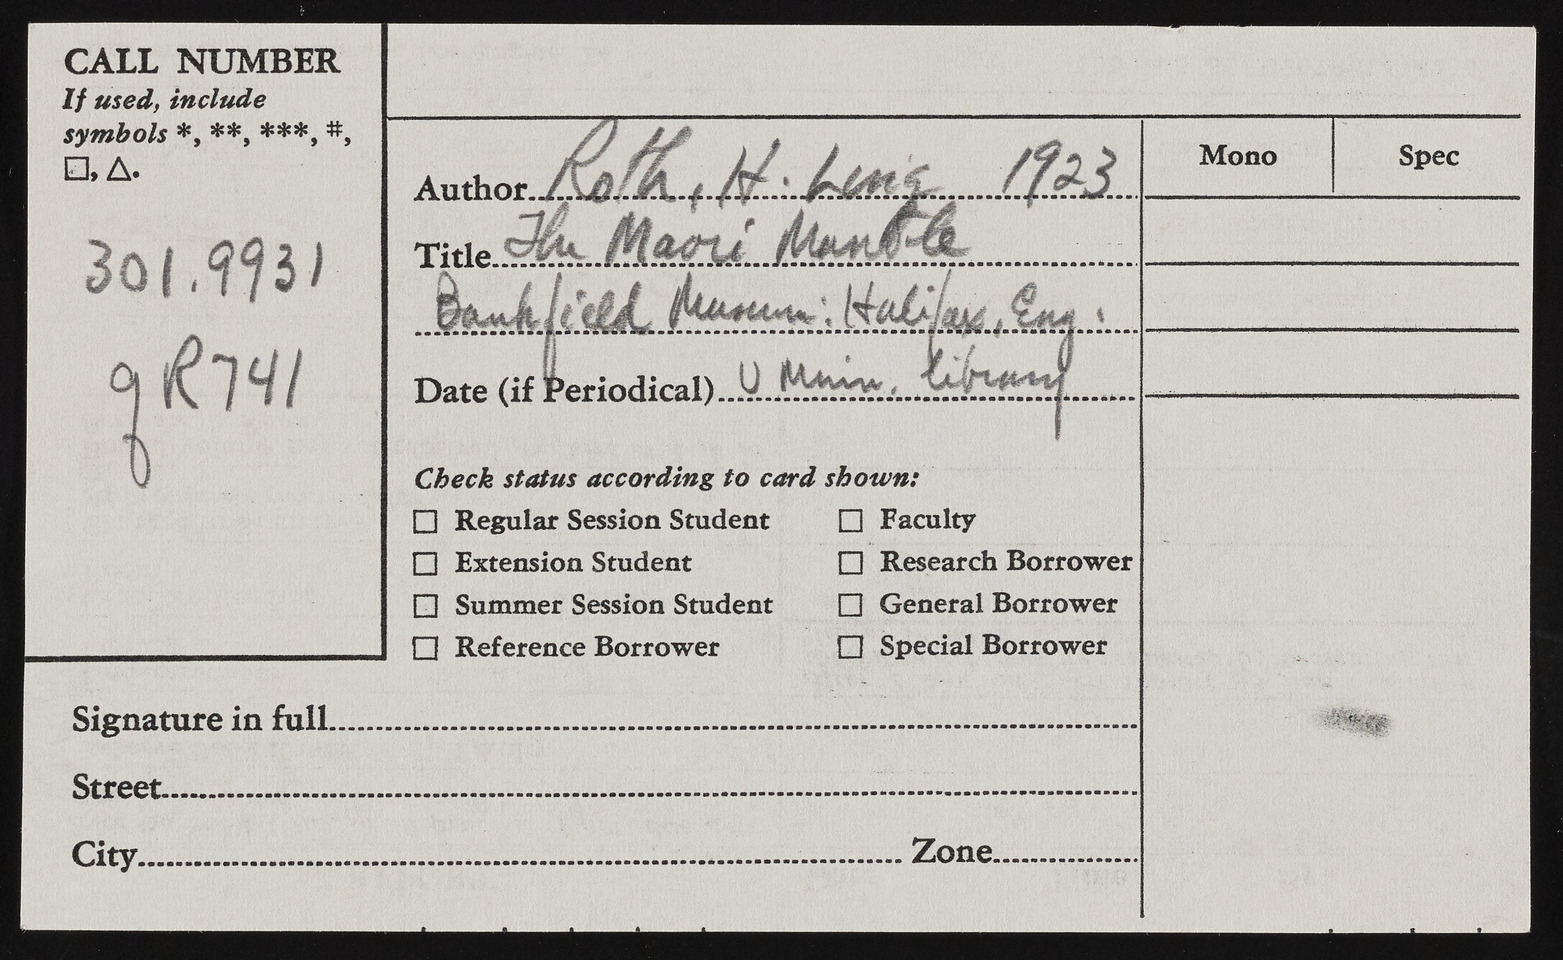 CALL NUMBER
If used, include
symbols *, **, ***, #,
□, △.
301.9931
qR741
Mono Spec
Author Roth, H. Ling 1923
Title The Maori Mantle
Bankfield Museum: Halifax, Eng.
Date (if Periodical) U Minn. library
Check status according to card shown:
□ Regular Session Student □ Faculty
□ Extension Student □ Research Borrower
□ Summer Session Student □ General Borrower
□ Reference Borrower □ Special Borrower
Signature in full
Street
City Zone